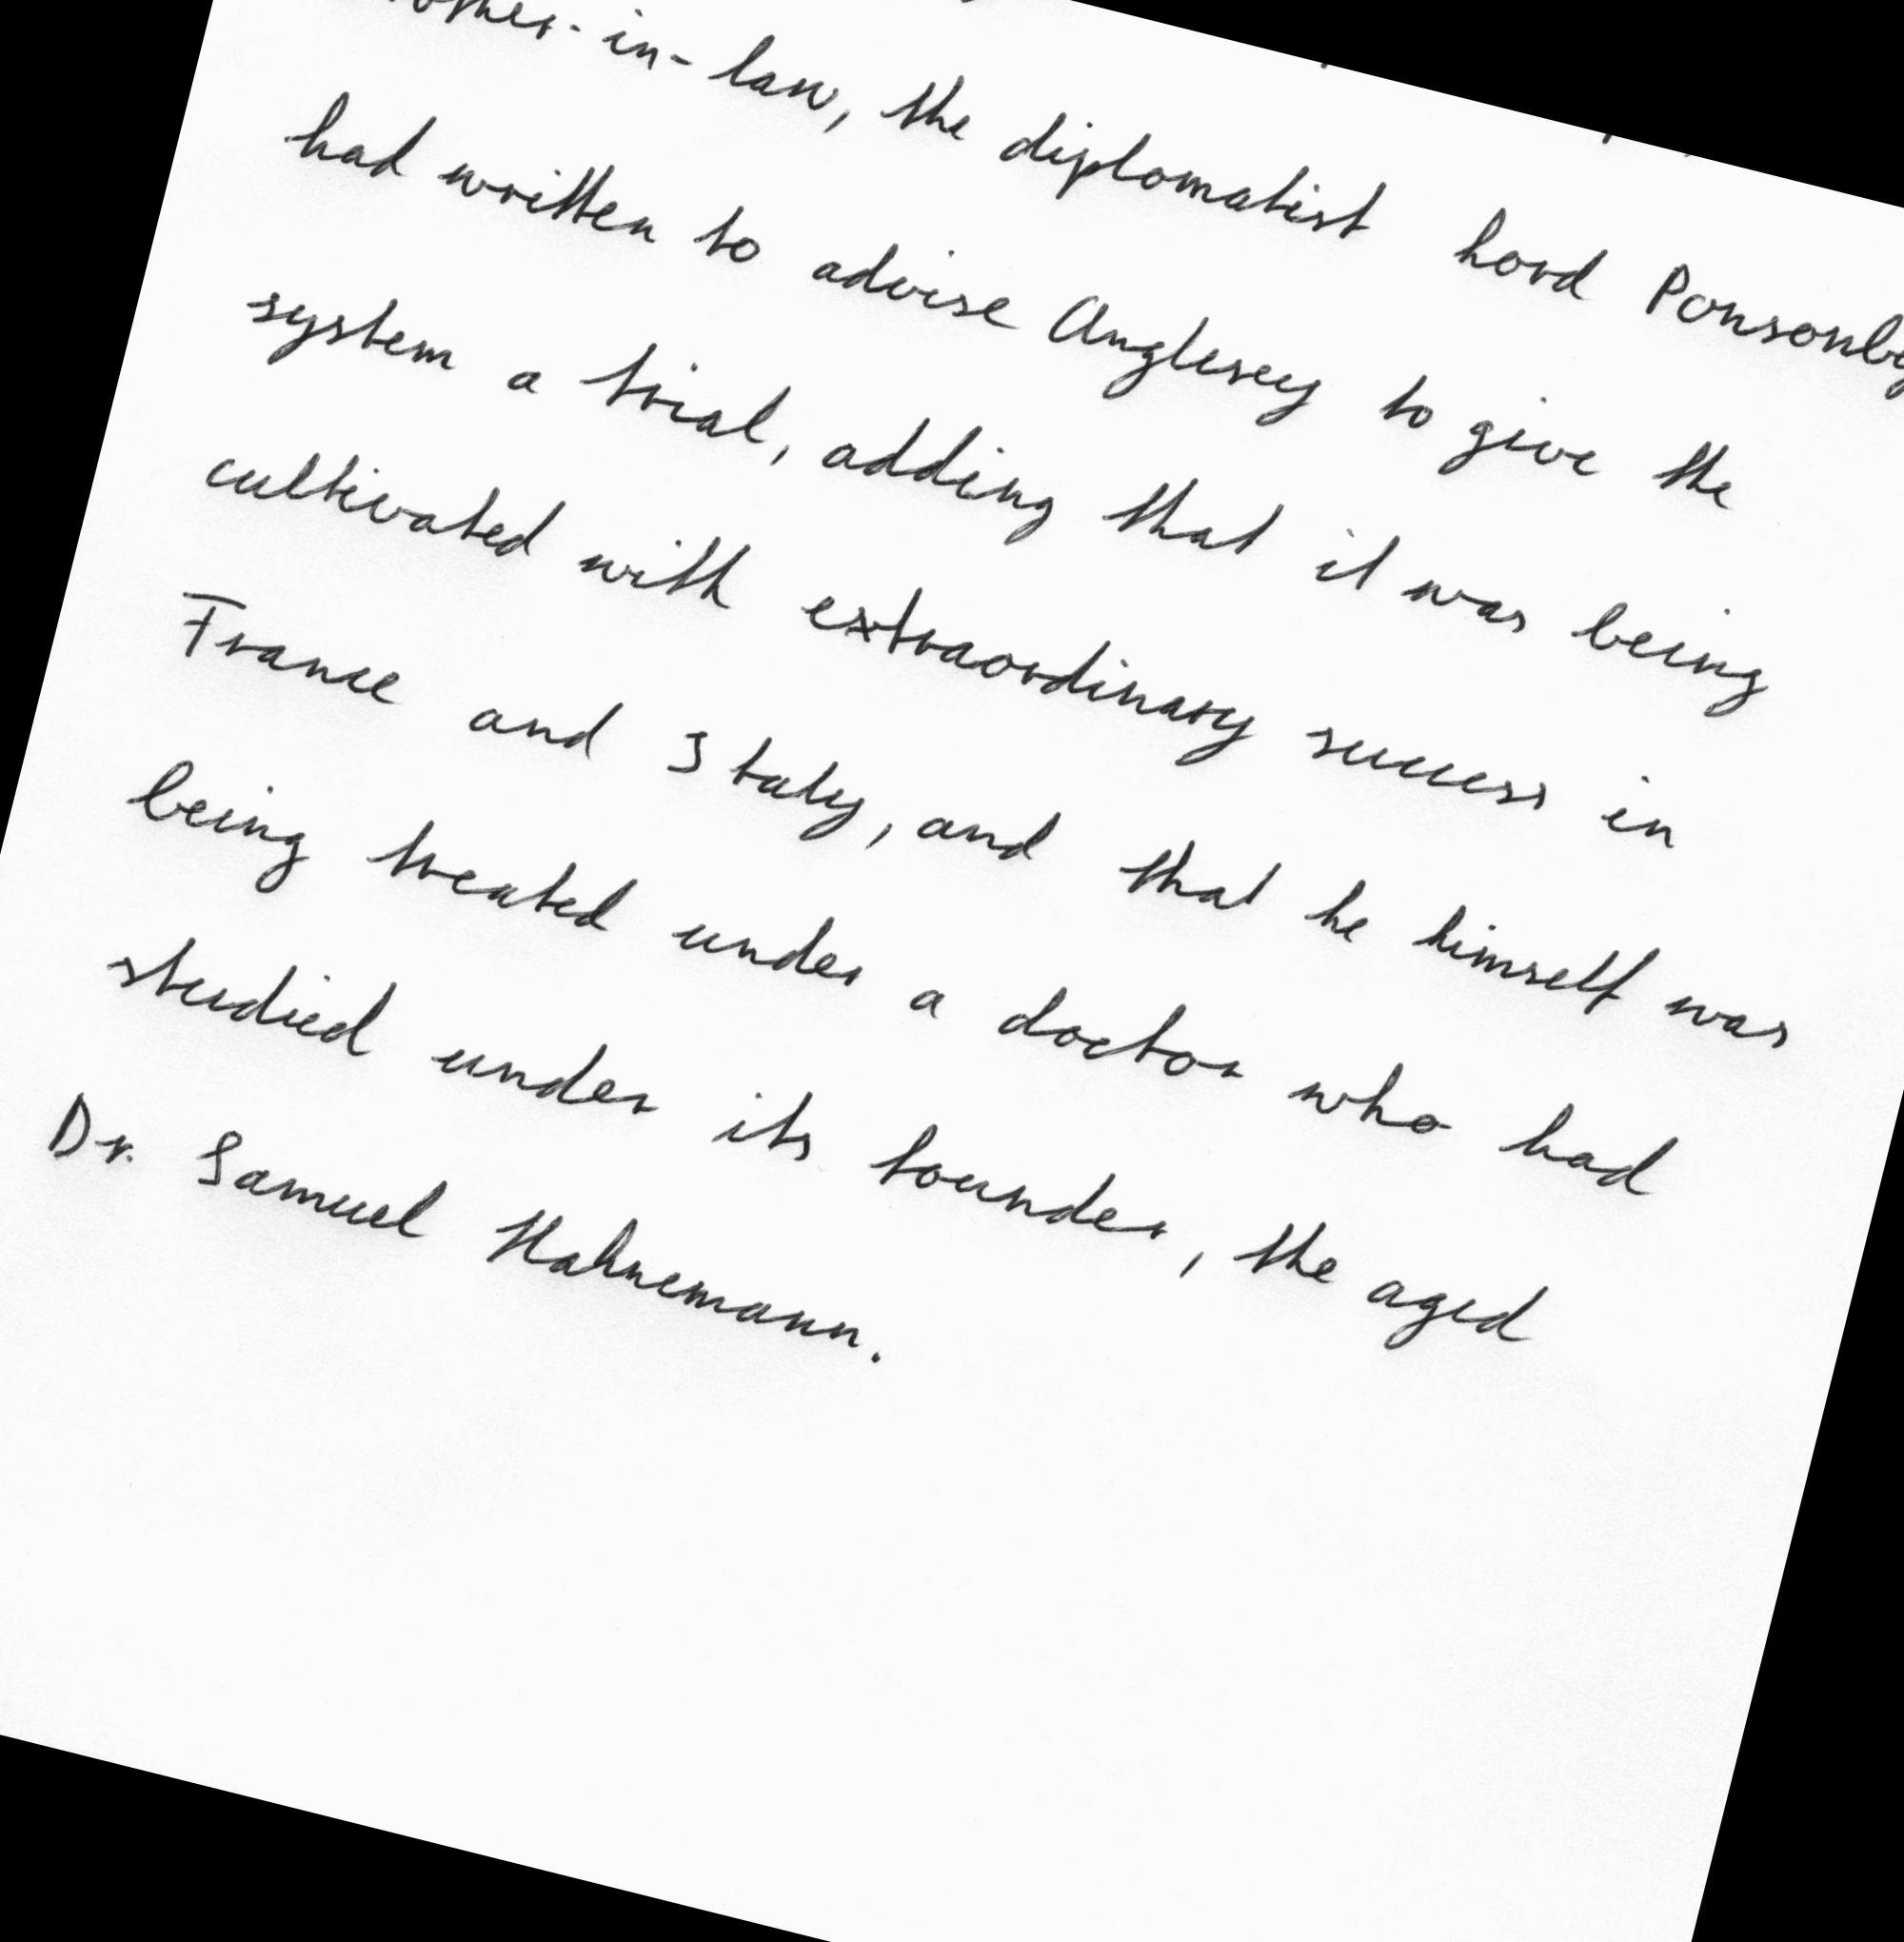 in-law, the diplomatist Lord Ponsonby
had written to advise Anglesey to give the
system a trial, adding that it was being
cultivated with extraordinary success in
France and Italy, and that he himself was
being treated under a doctor who had
studied under its founder, the aged
Dr. Samuel Hahnemann.